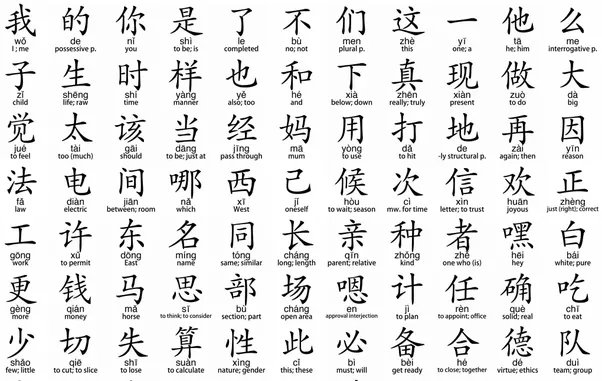 我 的 你 是 了 不 们 这 一 他 么
wǒ de nǐ shì le bù men zhè yī tā me
I ; me possessive p. you to be; is completed no; not plural p. this one; a he; him interrogative p.
子 生 时 样 也 和 下 真 现 做 大
zǐ shēng shí yàng yě hé xià zhēn xiàn zuò dà
child life; raw time manner also; too and below; down really; truly present to do big
觉 太 该 当 经 妈 用 打 地 再 因
jué tài gāi dāng jīng mā yòng dǎ de zài yīn
to feel too (much) should to be; just at pass through mum to use to hit -ly structural p. again; then reason
法 电 间 哪 西 己 候 次 信 欢 正
fǎ diàn jiān nǎ xī jǐ hòu cì xìn huān zhèng
law electric between; room which West oneself to wait; season mw. for time letter; to trust joyous just (right); correct
工 许 东 名 同 长 亲 种 者 嘿 白
gōng xǔ dōng míng tóng cháng qīn zhǒng zhě hēi bái
work to permit East name same; similar long; length parent; relative kind one who (is) hey white; pure
更 钱 马 思 部 场 嗯 计 任 确 吃
gèng qián mǎ sī bù chǎng èn jì rèn què chī
more money horse to think; to consider section; part open area approval interjection to plan to appoint; office solid; real to eat
少 切 失 算 性 此 必 备 合 德 队
shǎo qiē shī suàn xìng cǐ bì bèi hé dé duì
few; little to cut; to slice to lose to calculate nature; gender this; these must; will get ready to close; together virtue; ethics team; group